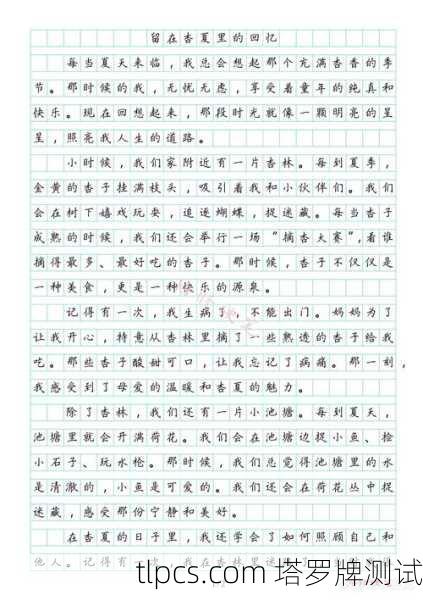 留在杏夏里的回忆
每当夏天来临，我总会想起那个充满杏香的季
节。那时候的我，无忧无虑，享受着童年的纯真和
快乐。现在回想起来，那段时光就像一颗明亮的星
星，照亮我人生的道路。
小时候，我们家附近有一片杏林。每到夏季，
金黄的杏子挂满枝头，吸引着我和小伙伴们。我们
会在树下嬉戏玩耍，追逐蝴蝶，捉迷藏。每当杏子
成熟的时候，我们还会举行一场“摘杏大赛”，看谁
摘得最多、最好吃的杏子。那时候，杏子不仅仅是
一种美食，更是一种快乐的源泉。
记得有一次，我生病了，不能出门。妈妈为了
让我开心，特意从杏林里摘了一些熟透的杏子给我
吃。那些杏子酸甜可口，让我忘记了病痛。那一刻，
我感受到了母爱的温暖和杏夏的魅力。
除了杏林，我们还有一片小池塘。每到夏天，
池塘里就会开满荷花。我们会在池塘边捉小鱼、捡
小石子、玩水枪。那时候，我们总觉得池塘里的水
是清澈的，小鱼是可爱的。我们还会在荷花丛中捉
迷藏，感受那份宁静和美好。
在杏夏的日子里，我还学会了如何照顾自己和
他人。记得有一次，我在杏林里迷
tlpcs.com 塔罗牌测试